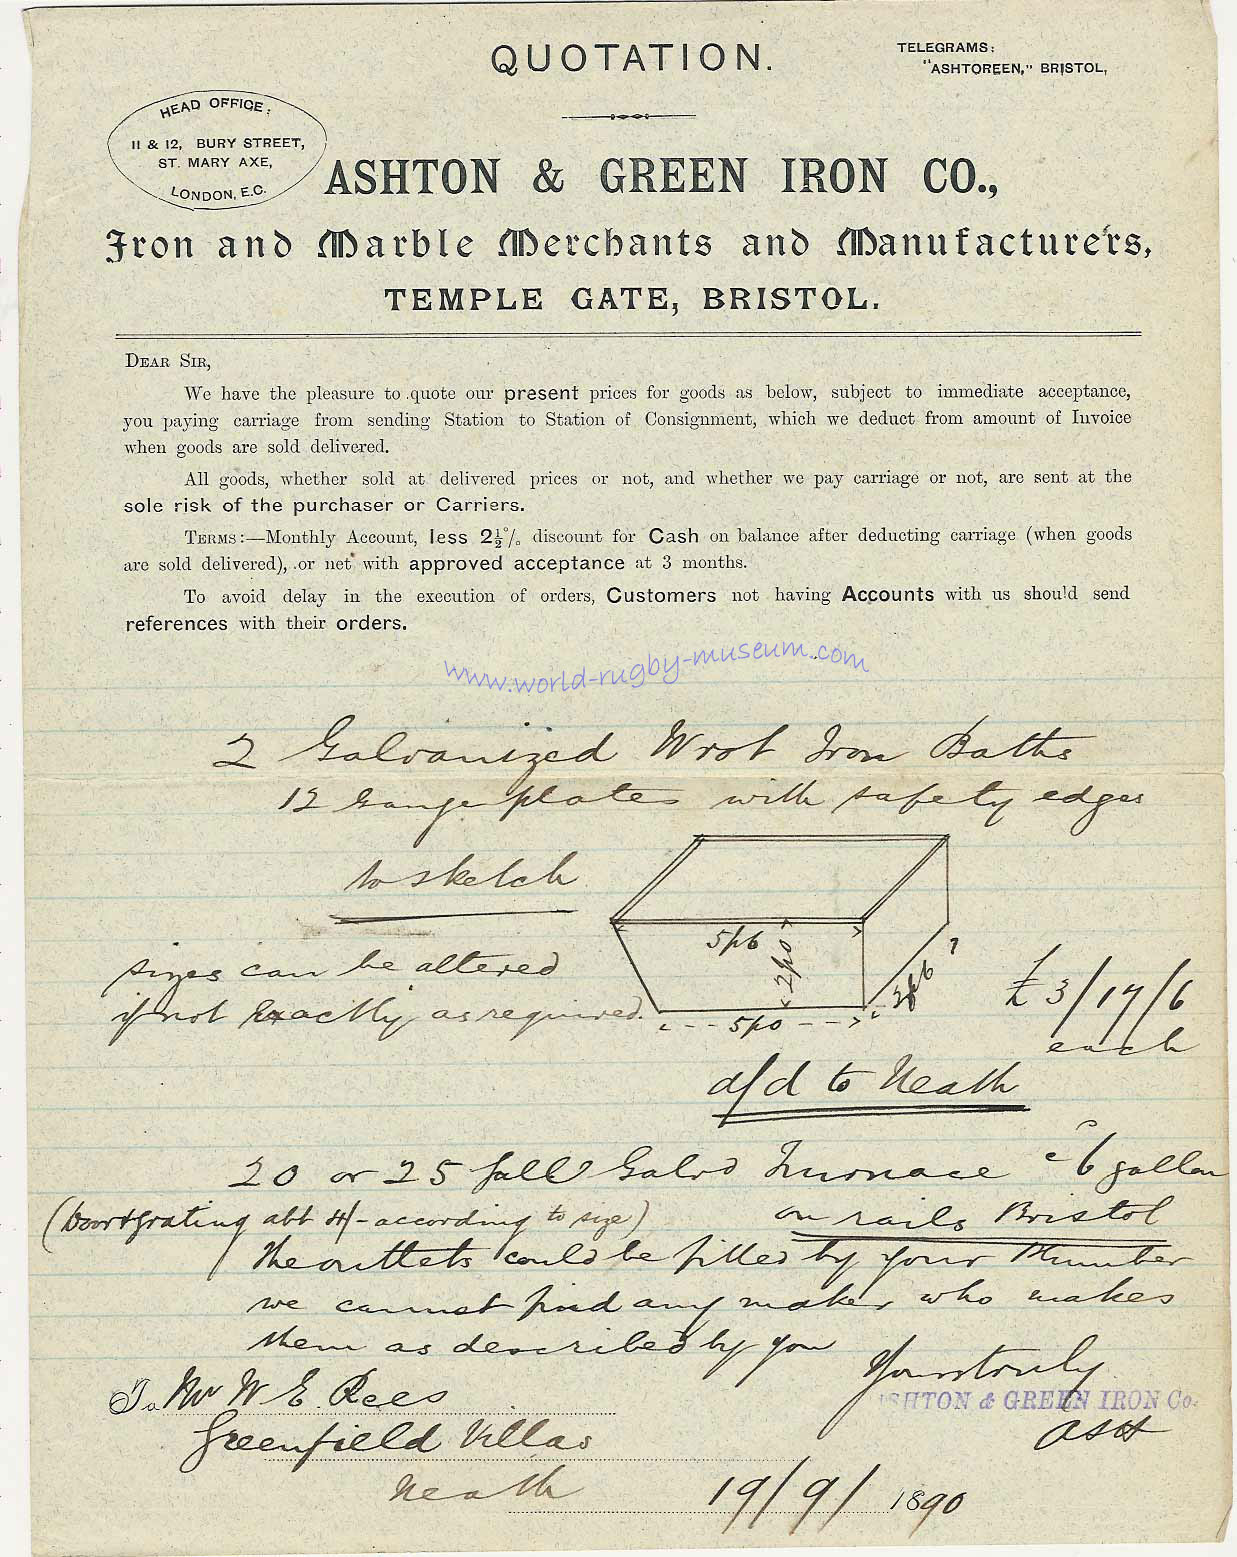 QUOTATION.
TELEGRAMS:
"ASHTOREEN," BRISTOL,
HEAD OFFICE:
11 & 12, BURY STREET,
ST. MARY AXE,
LONDON, E.C.
ASHTON & GREEN IRON CO.,
Iron and Marble Merchants and Manufacturers,
TEMPLE GATE, BRISTOL.
DEAR SIR,
We have the pleasure to quote our present prices for goods as below, subject to immediate acceptance,
you paying carriage from sending Station to Station of Consignment, which we deduct from amount of Invoice
when goods are sold delivered.
All goods, whether sold at delivered prices or not, and whether we pay carriage or not, are sent at the
sole risk of the purchaser or Carriers.
TERMS:—Monthly Account, less 2½% discount for Cash on balance after deducting carriage (when goods
are sold delivered), or net with approved acceptance at 3 months.
To avoid delay in the execution of orders, Customers not having Accounts with us should send
references with their orders.
www.world-rugby-museum.com
2 Galvanized Wrot Iron Baths
12 Gauge plates with safety edges
to sketch
5/6
2/0
5/0
2/6
?
sizes can be altered
if not exactly as required.
£3/17/6
each
d/d to Neath
20 or 25 gall Galvd Furnace 6 gallon
(Door & grating abt 4/- according to size)
on rails Bristol
The outlets could be fitted by your Plumber
we cannot find any maker who makes
them as described by you
Yours truly
ASHTON & GREEN IRON Co.
ASH
To Mr W E Rees
Greenfield Villas
Neath
19/9/1890